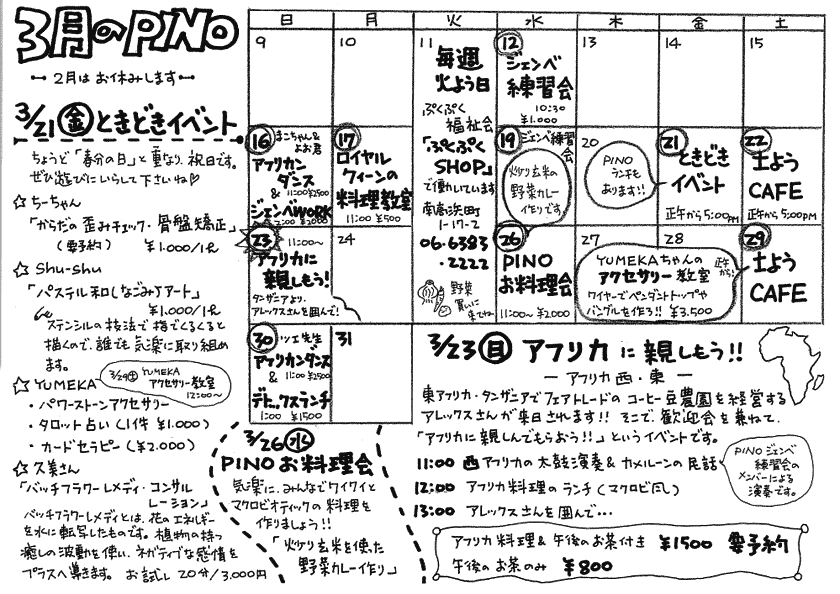 3月のPINO
2月はお休みします
3/21(金)ときどきイベント
ちょうど「春分の日」と重なり、祝日です。
ぜひ遊びにいらして下さいね♡
☆ ちーちゃん
「からだの歪みチェック・骨盤矯正」
(要予約) ¥1.000/1R
☆ Shu-shu
「パステル和(なごみ)アート」
¥1.000/1R
ステンシルの技法で指でくるくると
描くので、誰でも気楽に取り組め
ます。
☆ YUMEKA
3/29(土) YUMEKA
アクセサリー教室
12:00〜
・パワーストーンアクセサリー
・タロット占い(1件 ¥1.000)
・カードセラピー(¥2.000)
☆ 久美さん
「バッチフラワーレメディ・コンサル
レーション」
バッチフラワーレメディとは、花のエネルギー
を水に転写したものです。植物の持つ
癒しの波動を使い、ネガティブな感情を
プラスへ導きます。 お試し 20分/3.000円
日 月 火 水 木 金 土
9
10
11
毎週
火よう日
ぷくぷく
福祉会
「ぷくぷく
SHOP」
で働いています
南高浜町
1-17-2
06.6383
.2222
野菜
買いに
来てね
12
ジェンベ
練習会
10:30
¥1.000
13
14
15
16 まこちゃん&
よお君
アフリカン
ダンス
11:00 ¥2500
&
ジェンベWORK
2:00 ¥2000
17
ロイヤル
クィーンの
料理教室
11:00 ¥500
19 ジェンベ練習
会
炒り玄米の
野菜カレー
作りです。
20
PINO
ランチも
あります!!
21
ときどき
イベント
正午から5:00PM
22
土よう
CAFE
正午から5:00PM
23 11:00〜
アフリカに
親しもう!
タンザニアより、
アレックスさんを囲んで!
24
26
PINO
お料理会
11:00〜 ¥2000
27
28
YUMEKAちゃんの
アクセサリー教室
正午から!
ワイヤーでペンダントトップや
バングルを作ろ!! ¥3.500
29
土よう
CAFE
30 ツエ先生
アフリカンダンス
& 11:00 ¥2500
デトックスランチ
1:00 ¥1500
31
3/26(水)
PINOお料理会
気楽に、みんなでワイワイと
マクロビオティックの料理を
作りましょう!!
「炒り玄米を使った
野菜カレー作り」
3/23(日) アフリカに親しもう!!
— アフリカ西・東 —
東アフリカ・タンザニアでフェアトレードのコーヒー豆農園を経営する
アレックスさんが来日されます!! そこで、歓迎会を兼ねて、
「アフリカに親しんでもらおう!!」というイベントです。
11:00 西アフリカの太鼓演奏&カメルーンの民話
12:00 アフリカ料理のランチ(マクロビ風)
13:00 アレックスさんを囲んで...
PINOジェンベ
練習会の
メンバーによる
演奏です。
アフリカ料理&午後のお茶付き ¥1500 要予約
午後のお茶のみ ¥800